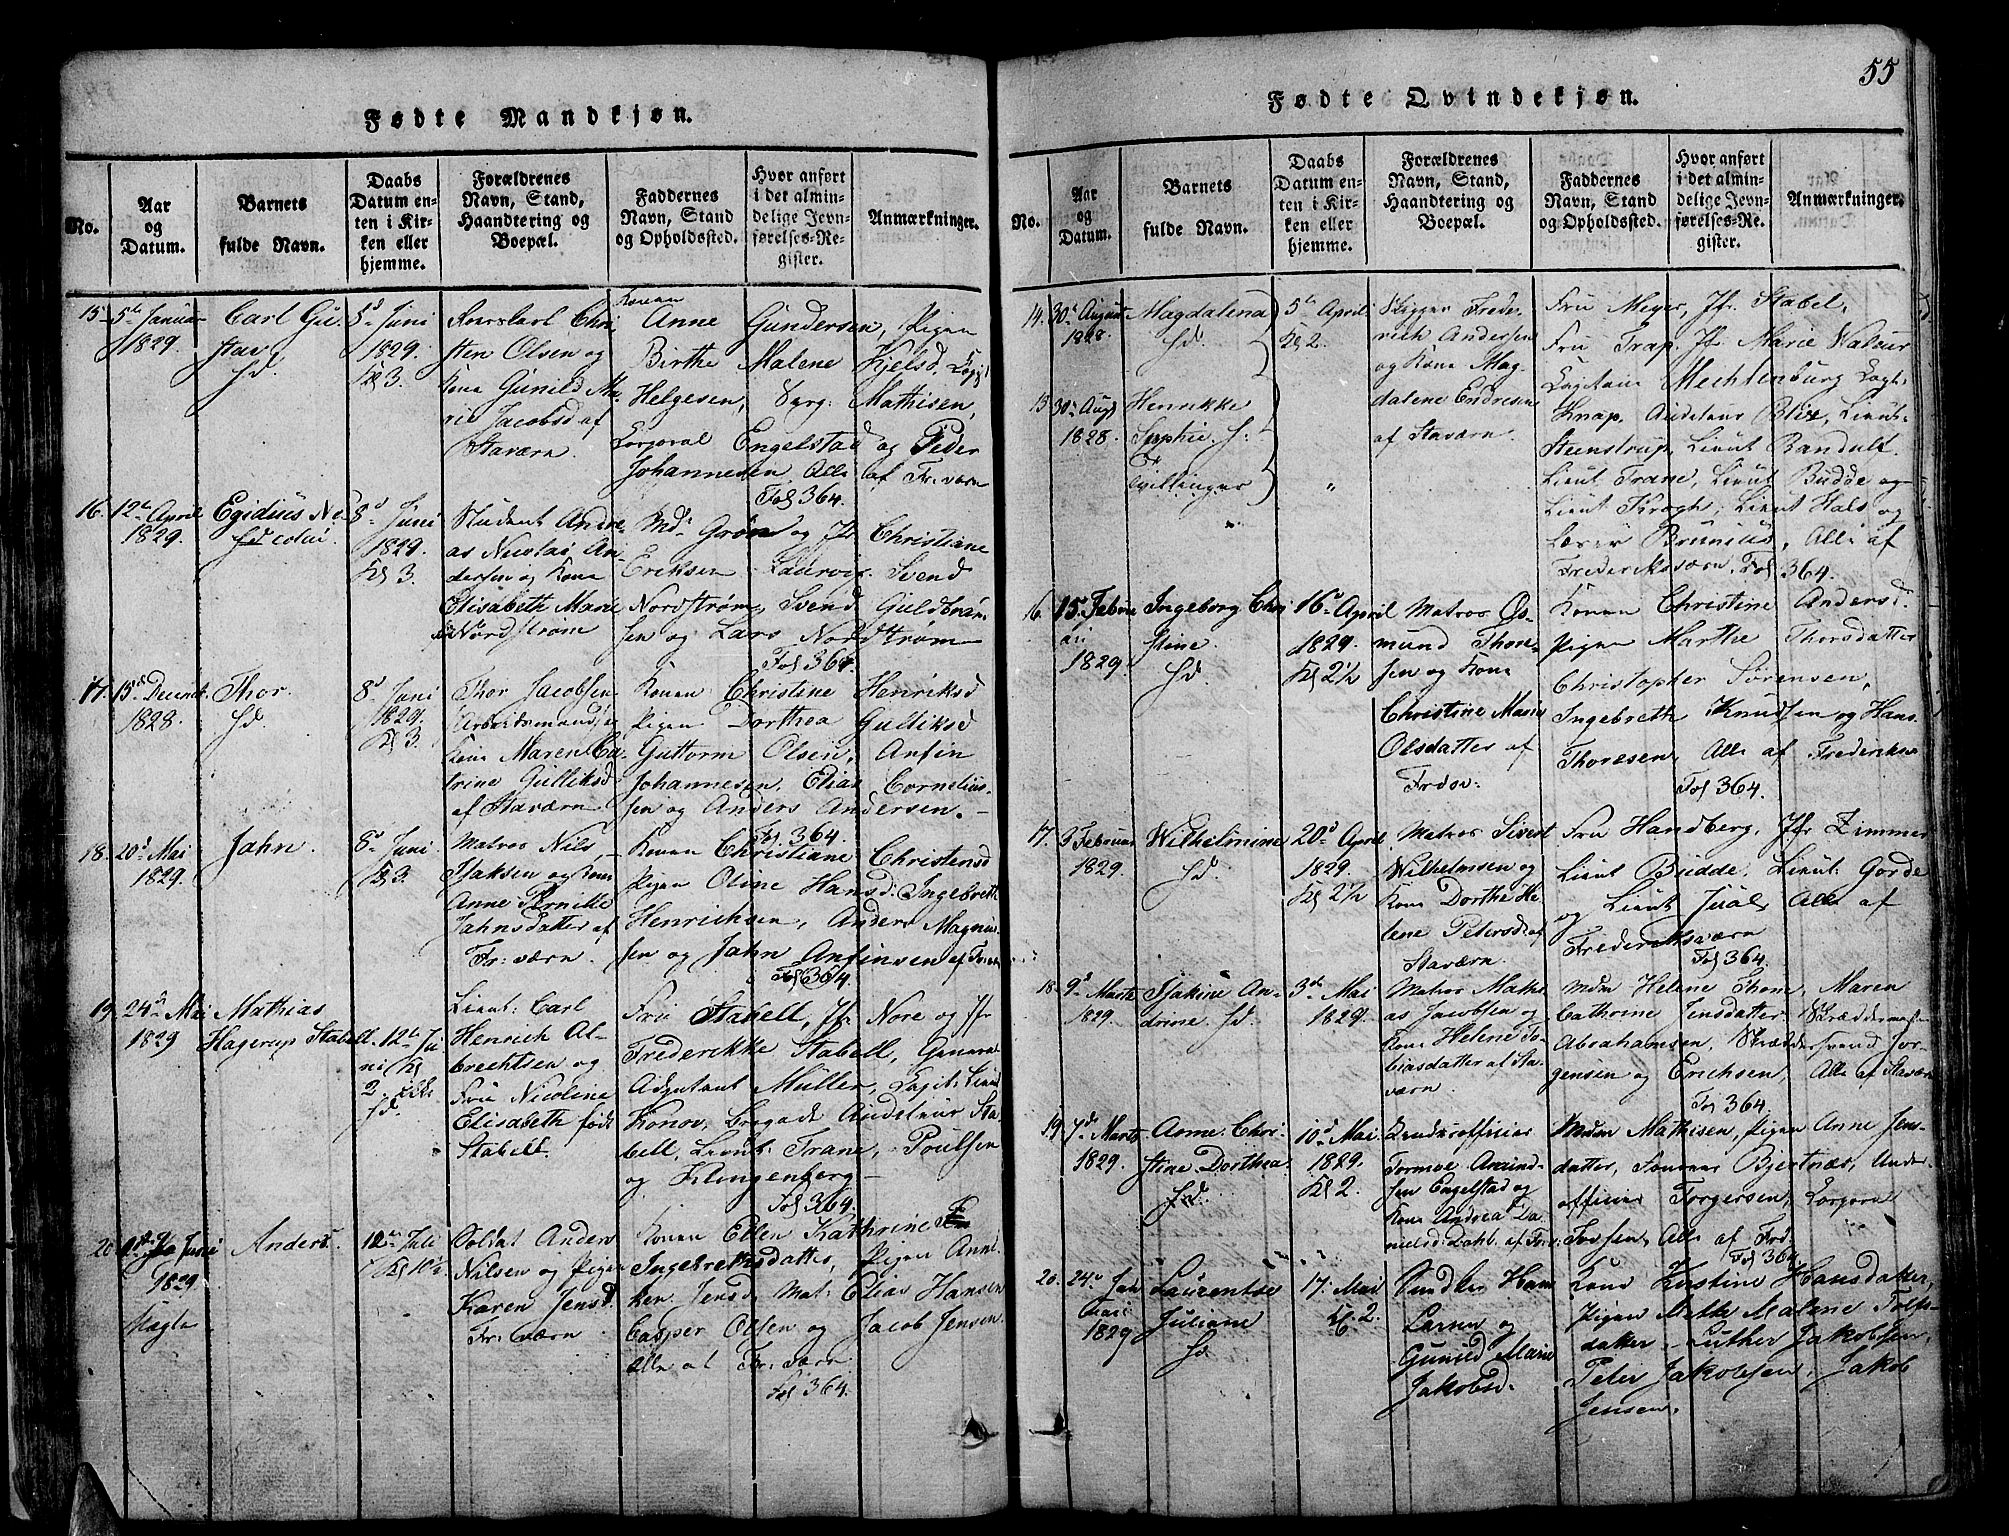 55
Fødte Mandkjøn.
No.
Aar
og
Datum.
Barnets
fulde Navn.
Daabs
Datum en-
ten i Kir-
ken eller
hjemme.
Forældrenes
Navn, Stand,
Haandtering og
Boepæl.
Faddernes
Navn, Stand
og Opholdssted.
Hvor anført
i det almin-
delige Jevn-
førelses-Re-
gister.
Anmærkninger.
15
5te Januar
1829.
Carl Gu-
stav
8d Juni
1829.
Kl 3.
Christen Olsen og
Kone Gunild Ma-
rie Jacobsd af
Staværn.
Konen
Anne Gundersen, Pigen
Birthe Malene Kjelsd,
Helgesen, Mathisen,
Corporal Engelstad og Peder
Johannesen Alle af Fr:værn
Fol 364.
16.
12te April
1829.
Egidius Ni-
colai
8d Juni
1829.
Kl 3.
Student Andre-
as Nicolai An-
dersen og Kone
Elisabeth Marie
Nordstrøm
Md. Grøn og Jfr Christiane
Eriksen Laurvig. Svend
Nordstrøm, Svend Guldbran-
sen og Lars Nordstrøm
Fol 364.
17.
15d Decemb.
1828
Thor.
8d Juni
1829.
Kl 3.
Thor Jacobsen
Arbeidsmand og
Kone Maren Ca-
trine Gulliksd
af Staværn.
Konen Christine Henriksd
Pigen Dorthea Gulliksd
Guttorm Olsen, Anfin
Johannesen, Elias Cornelius-
sen og Anders Andersen.
Fol 364.
18.
20d Mai
1829.
Jahn.
8d Juni
Kl 3.
Matros Nils
Isaksen og Kone
Anne Pernille
Jahnsdatter af
Fr: værn.
Konen Christiane Christensd
Pigen Oline Hansd: Ingebreth
Henrichsen, Anders Magnus-
sen og Jahn Anfinsen af Fr:værn
Fol 364.
19.
24d Mai
1829
Mathias
Hagerup Stabell
d. 12te Ju-
ni Kl
2.
Lieut: Carl
Henrich Al-
brechtsen og
Frue Nicoline
Elisabeth født
Stabell.
Fru Stabell, Jfr. Nore og Jfr
Frederikke Stabell, General
Adjutant Müller, Capit: Lieut
Konov, Brigade Auditeur Sta-
bell, Lieut: Trane, Poulsen
og Klingenberg
Fol 364.
20
Juni
1829
Uægte
Anders.
12te Juli
Kl 10½
Soldat Anders
Nilsen og Pigen
Karen Jensd.
Fr: værn.
Konen Ellen Kathrine
Ingebrethsdatter, Pigen Anne
Jensd. Mat: Elias Hansen
Casper Olsen og Jacob Jensen
alle af Fr: værn
Fol 364.
Fødte Qvindekjøn.
No.
Aar
og
Datum.
Barnets
fulde Navn.
Daabs
Datum en-
ten i Kir-
ken eller
hjemme.
Forældrenes
Navn, Stand,
Haandtering og
Boepæl.
Faddernes
Navn, Stand
og Opholdssted.
Hvor anført
i det almin-
delige Jevn-
førelses-Re-
gister.
Anmærkninger.
14.
30te August
1828.
Magdalena
5te April
Kl 2.
Skipper Frede-
rich Andersen
og Kone Mag-
dalene Endresen
af Staværn.
Fru Meyer, Jfr. Stabel,
Fru Trap, Jfr Marie Waluer
Capitain Mechlenburg Capt:
Knap, Auditeur Blix, Lieut:
Steenstrup, Lieut Bandulf.
Lieut Trane, Lieut Budde og
Lieut Krogh, Lieut Hals og
Lærer Brunius, Alle af
Frederiksværn. Fol 364.
15
30te Augs
1828.
Henrikke
Sophie.
Tvillinger
"
6.
15. Febru-
ari
1829.
Ingeborg Chri-
stine.
16te April
1829.
Kl 2½
Matros Os-
mund Thore-
sen og Kone
Christine Marie
Olsdatter af
Frdsv.
Konen Christine Andersd.
Pigen Marthe Thorsdatter
Christopher Sørensen,
Ingebreth Knudsen og Hans
Thoresen, Alle af Frederiksv.
Fol 364.
17.
3 Februar
1829.
Wilhelmine
20d April
1829.
Kl 2½
Matros Sivert
Wilhelmsen og
Kone Dorthe He-
lene Petersd: af
Staværn.
Fru Handberg, Jfr Zimmer
Lieut Budde, Lieut: Gorde
og Lieut Juul, Alle af
Frederiksværn
Fol 364.
18.
9d Marts
1829.
Isakine An-
drine.
3de Mai
1829.
Matros Mathi-
as Jacobsen og
Kone Helene To-
biasdatter af Sta-
værn.
Mdm Helene Thom, Maren
Cathrine Jensdatter, Skræddermest:
Abrahamsen, Skræddersvend Jør-
gensen og Erichsen, Alle af Staværn
Fol 364
19
7de Marts
1829.
Anne Chri-
stine Dorthea.
10d Mai
1829.
Kl 2.
Underofficier
Tormoe Amund-
sen Engelstad og
Kone Andrea Da-
nielsd: Dahl. af Frv:
Mdm Mathisen, Pigen Anne Jens-
datter, Bjertnæs, Under-
officier Torgersen, Corporal
Tosten, Alle af Frv.
Fol 364
20.
24de Jan-
uari
1829
Laurentse
Juliane
17. Mai
Kl 2.
Larsen og
Gunild Marie
Jakobsd.
Kone Kirstine Hansdatter,
Pigen Mette Malene Tolfs-
datter, Luther Jakobsen,
Peter Jakobsen, Jakob
Jensen.